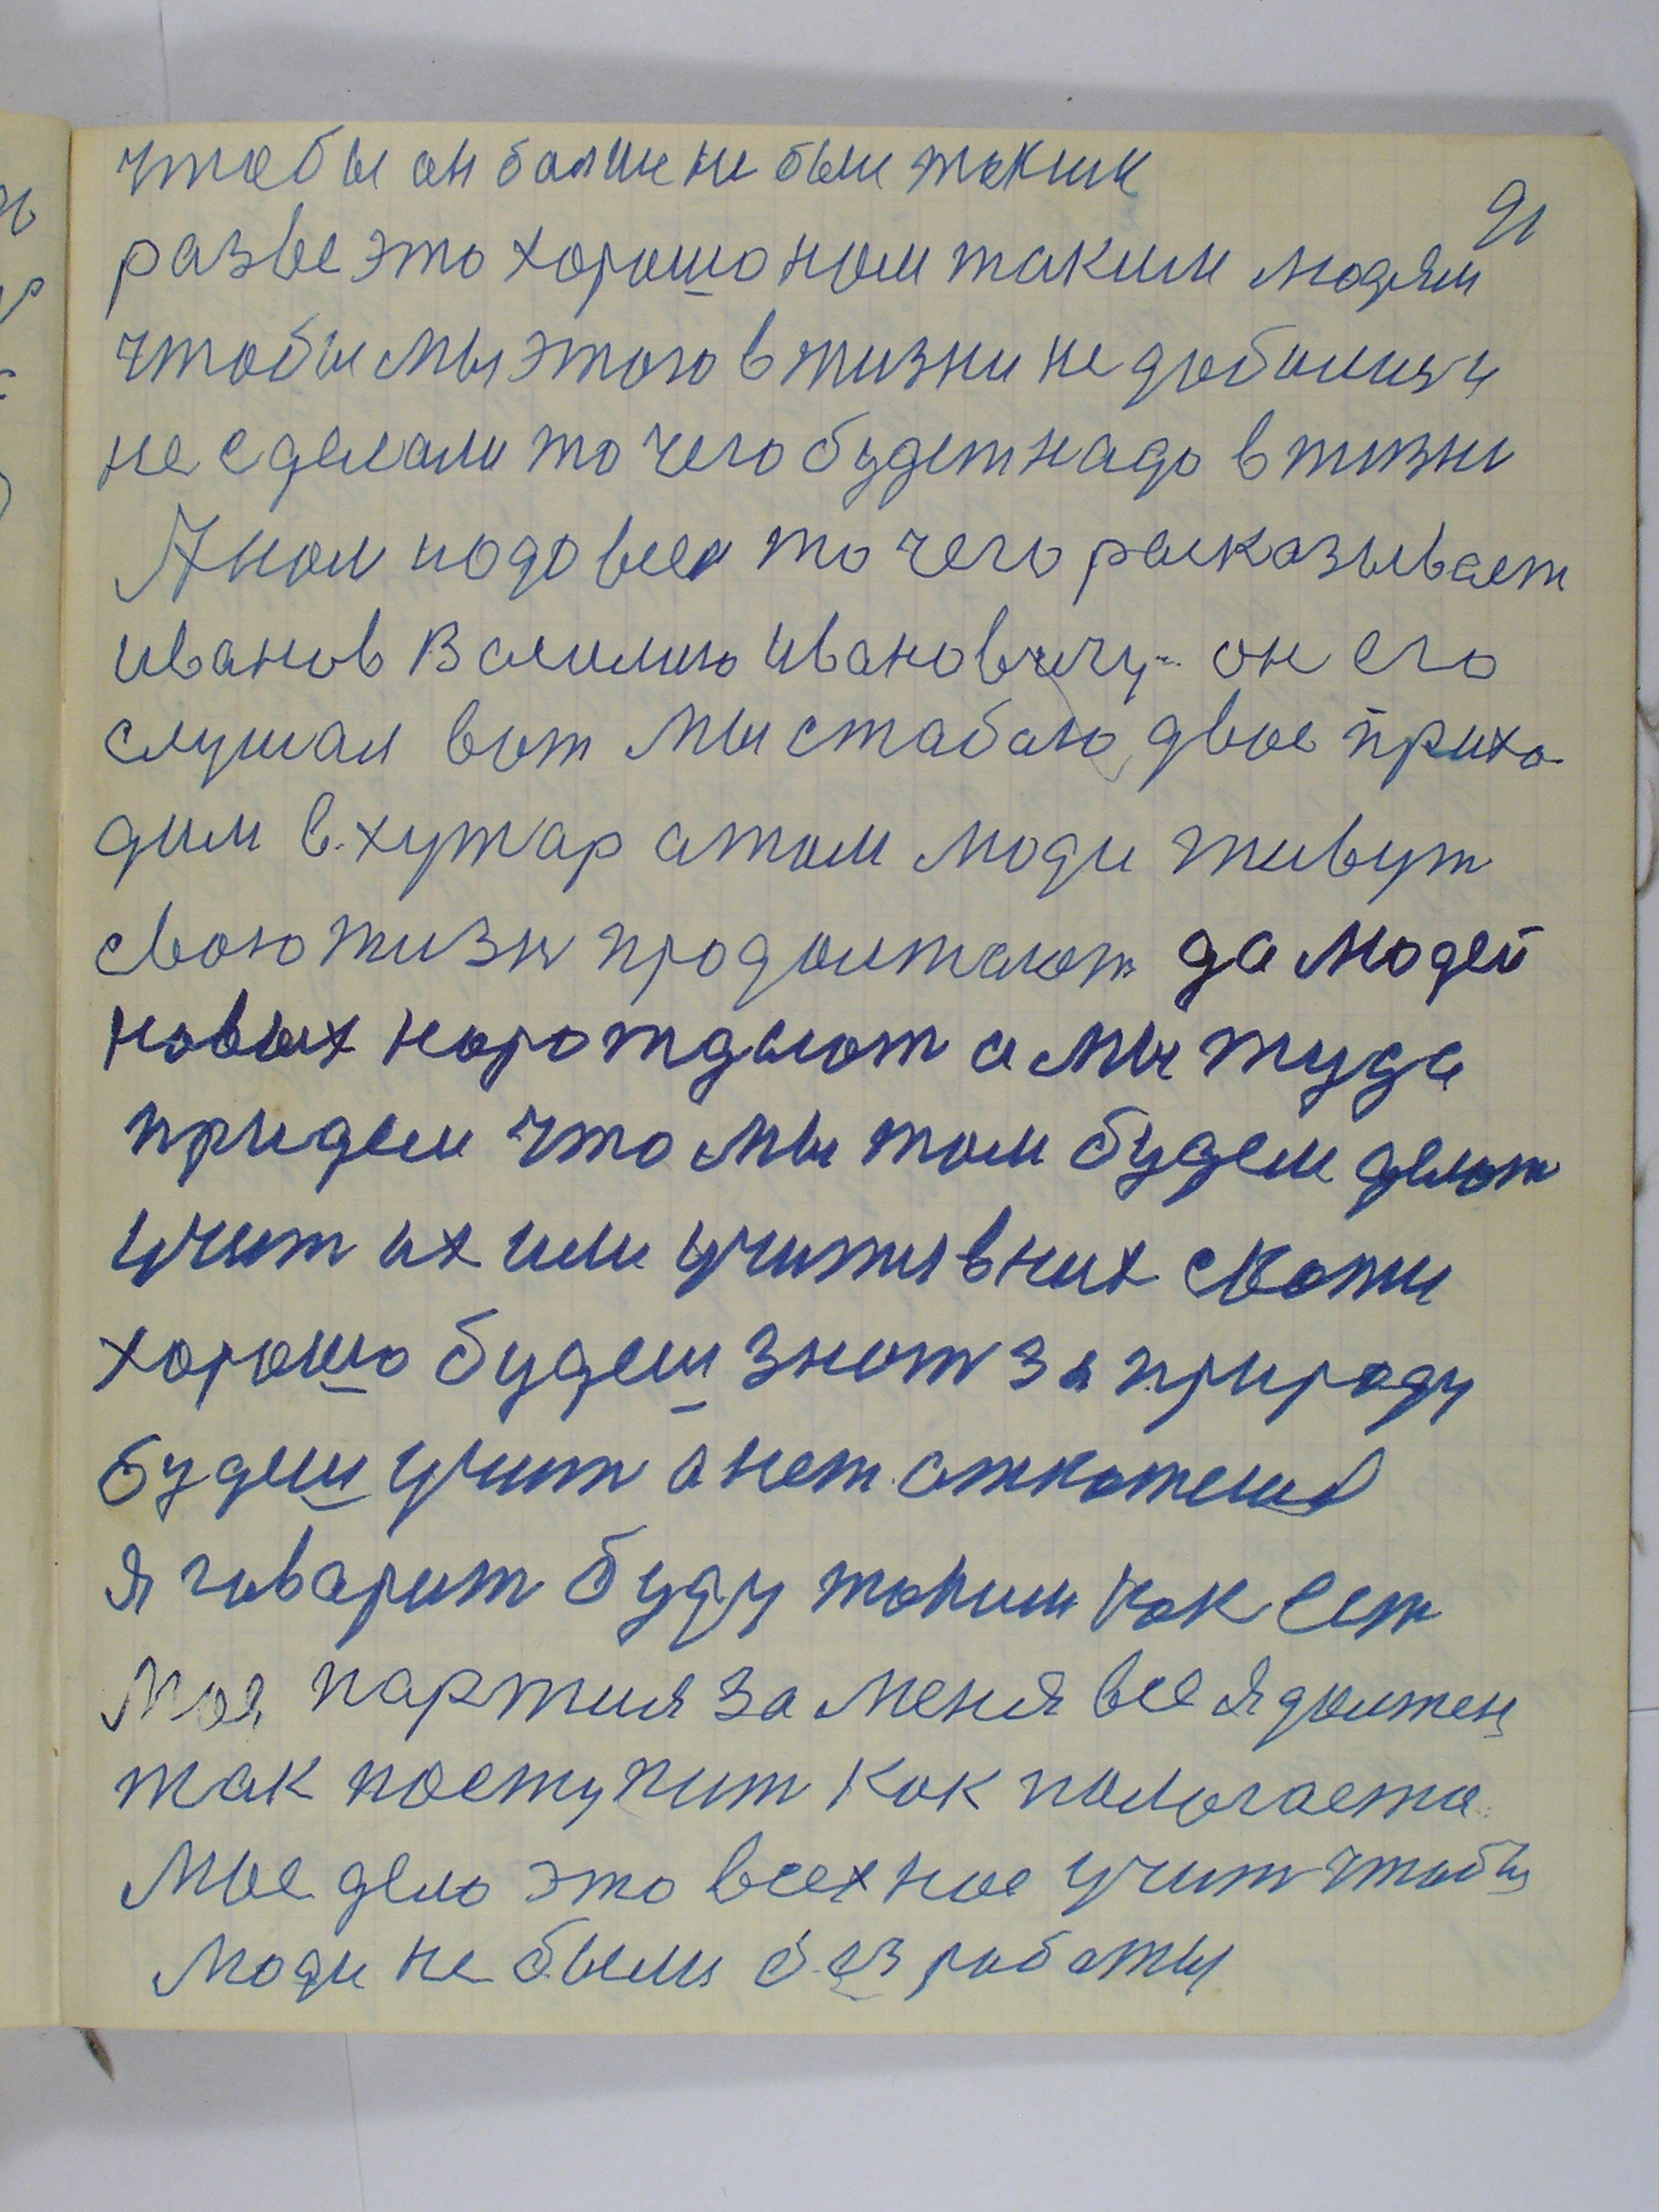 чтобы он болше не был таким
91
разве это хорошо ном таким людям
чтобы мы этого в жизни не добилися и
не сделали то чего будет надо в жизни
А ном надо всем то чего расказывает
иванов Василию Ивановичу он его
слушал вот мы стабою двое прихо
дим в хутар а там люди живут
свою жизн продолжают да людей
новых нарождают а мы туда
придем что мы там будем делат
учит их или учится в них скажи
хорошо будеш знат за природу
будеш учит а нет откажешся
я говарит буду таким как ест
Моя партия за меня все я должен
так поступит как полагается
Мое дело это всех нас учит чтобы
люди не были без работы